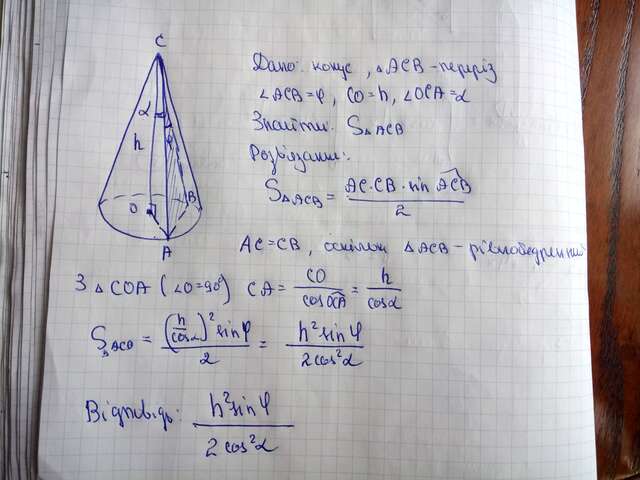 C
α
φ
h
O
B
A
Дано: конус, △ACB - переріз
∠ACB = φ, CO = h, ∠OCA = α
Знайти: S△ACB
Розв'язання:
S△ACB = AC·CB·sin ACB / 2
AC = CB, оскільки △ACB - рівнобедрений
З △COA (∠O = 90°) CA = CO / cos OCA = h / cosα
S△ACB = (h / cosα)² sinφ / 2 = h² sinφ / 2cos²α
Відповідь: h² sinφ / 2cos²α